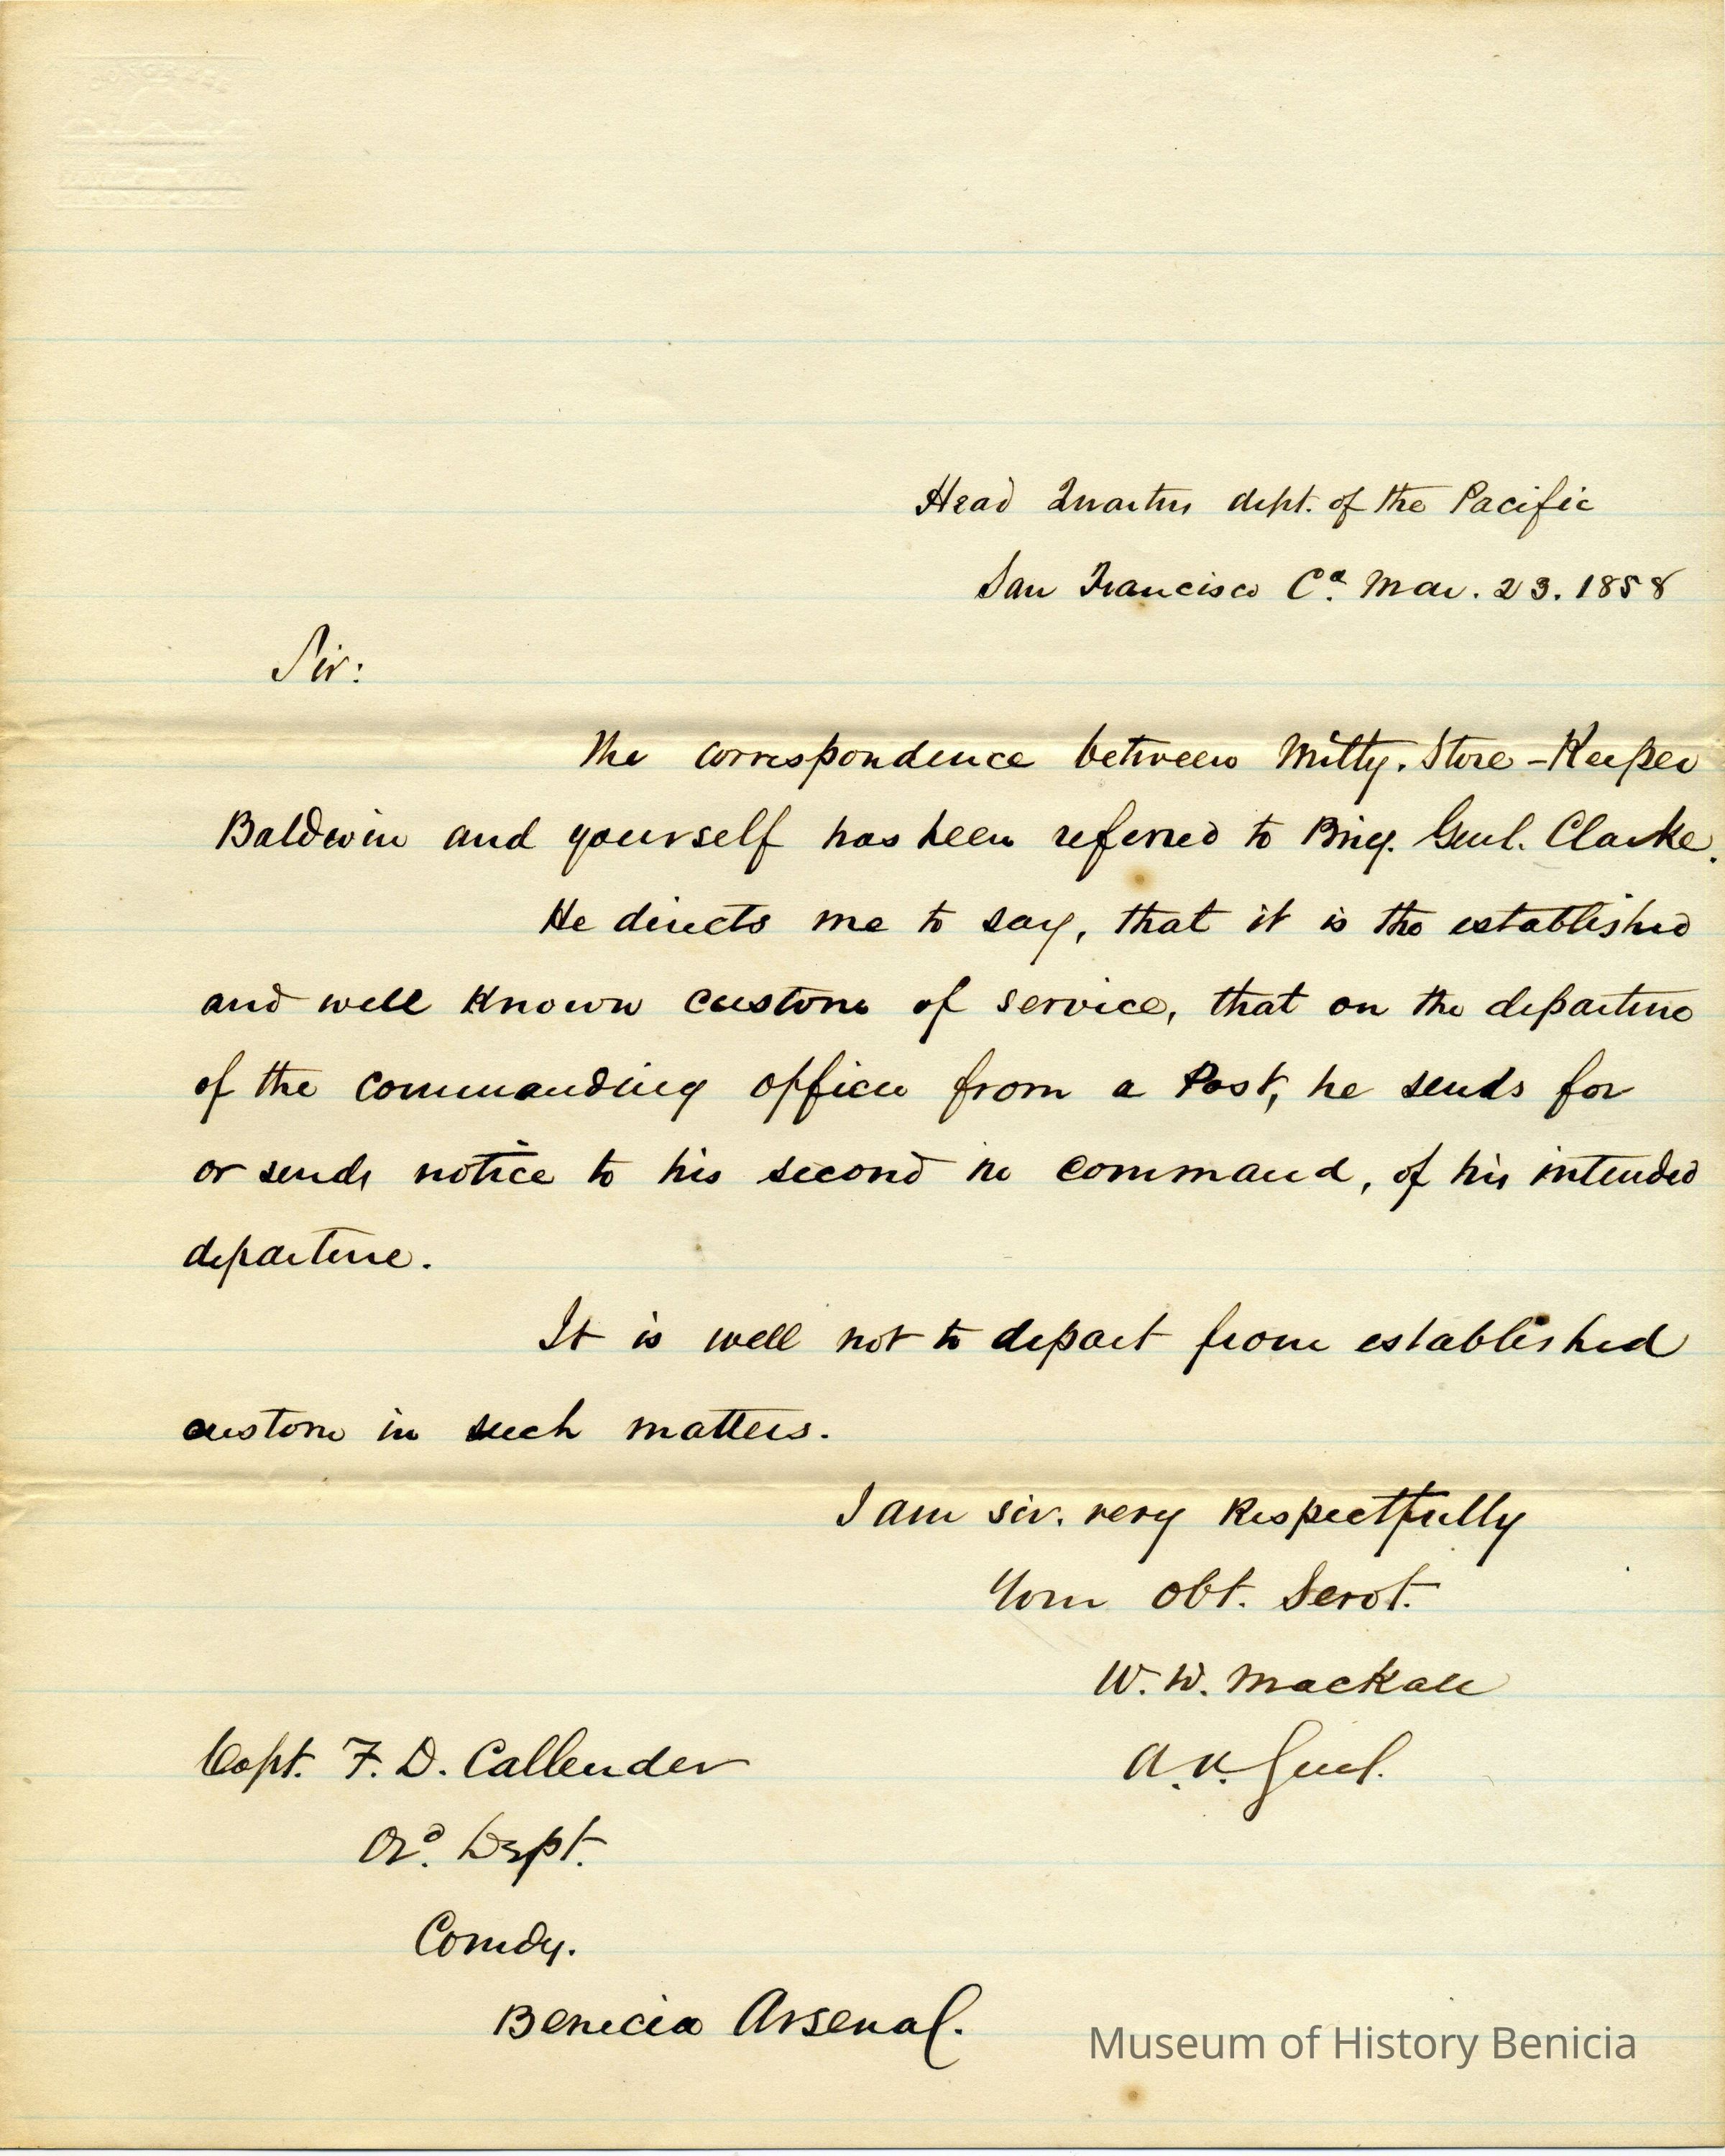 Head Quarters dept. of the Pacific
San Francisco Ca. Mar. 23. 1858
Sir:
The correspondence between Militty. Store-Keeper
Baldwin and yourself has been referred to Brig. Genl. Clarke.
He directs me to say, that it is the established
and well known custom of service, that on the departure
of the commanding officer from a Post, he sends for
or sends notice to his second in command, of his intended
departure.
It is well not to depart from established
custom in such matters.
I am sir. very Respectfully
Your Obt. Servt.
W. W. Mackall
A. A. Genl.
Capt. F. D. Callender
Ord. Dept.
Comdg.
Benicia Arsenal.
Museum of History Benicia